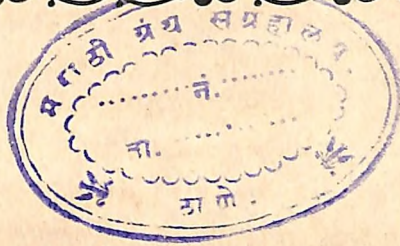 मराठी ग्रंथ संग्रहालय.
नं.
ता.
ठाणे.